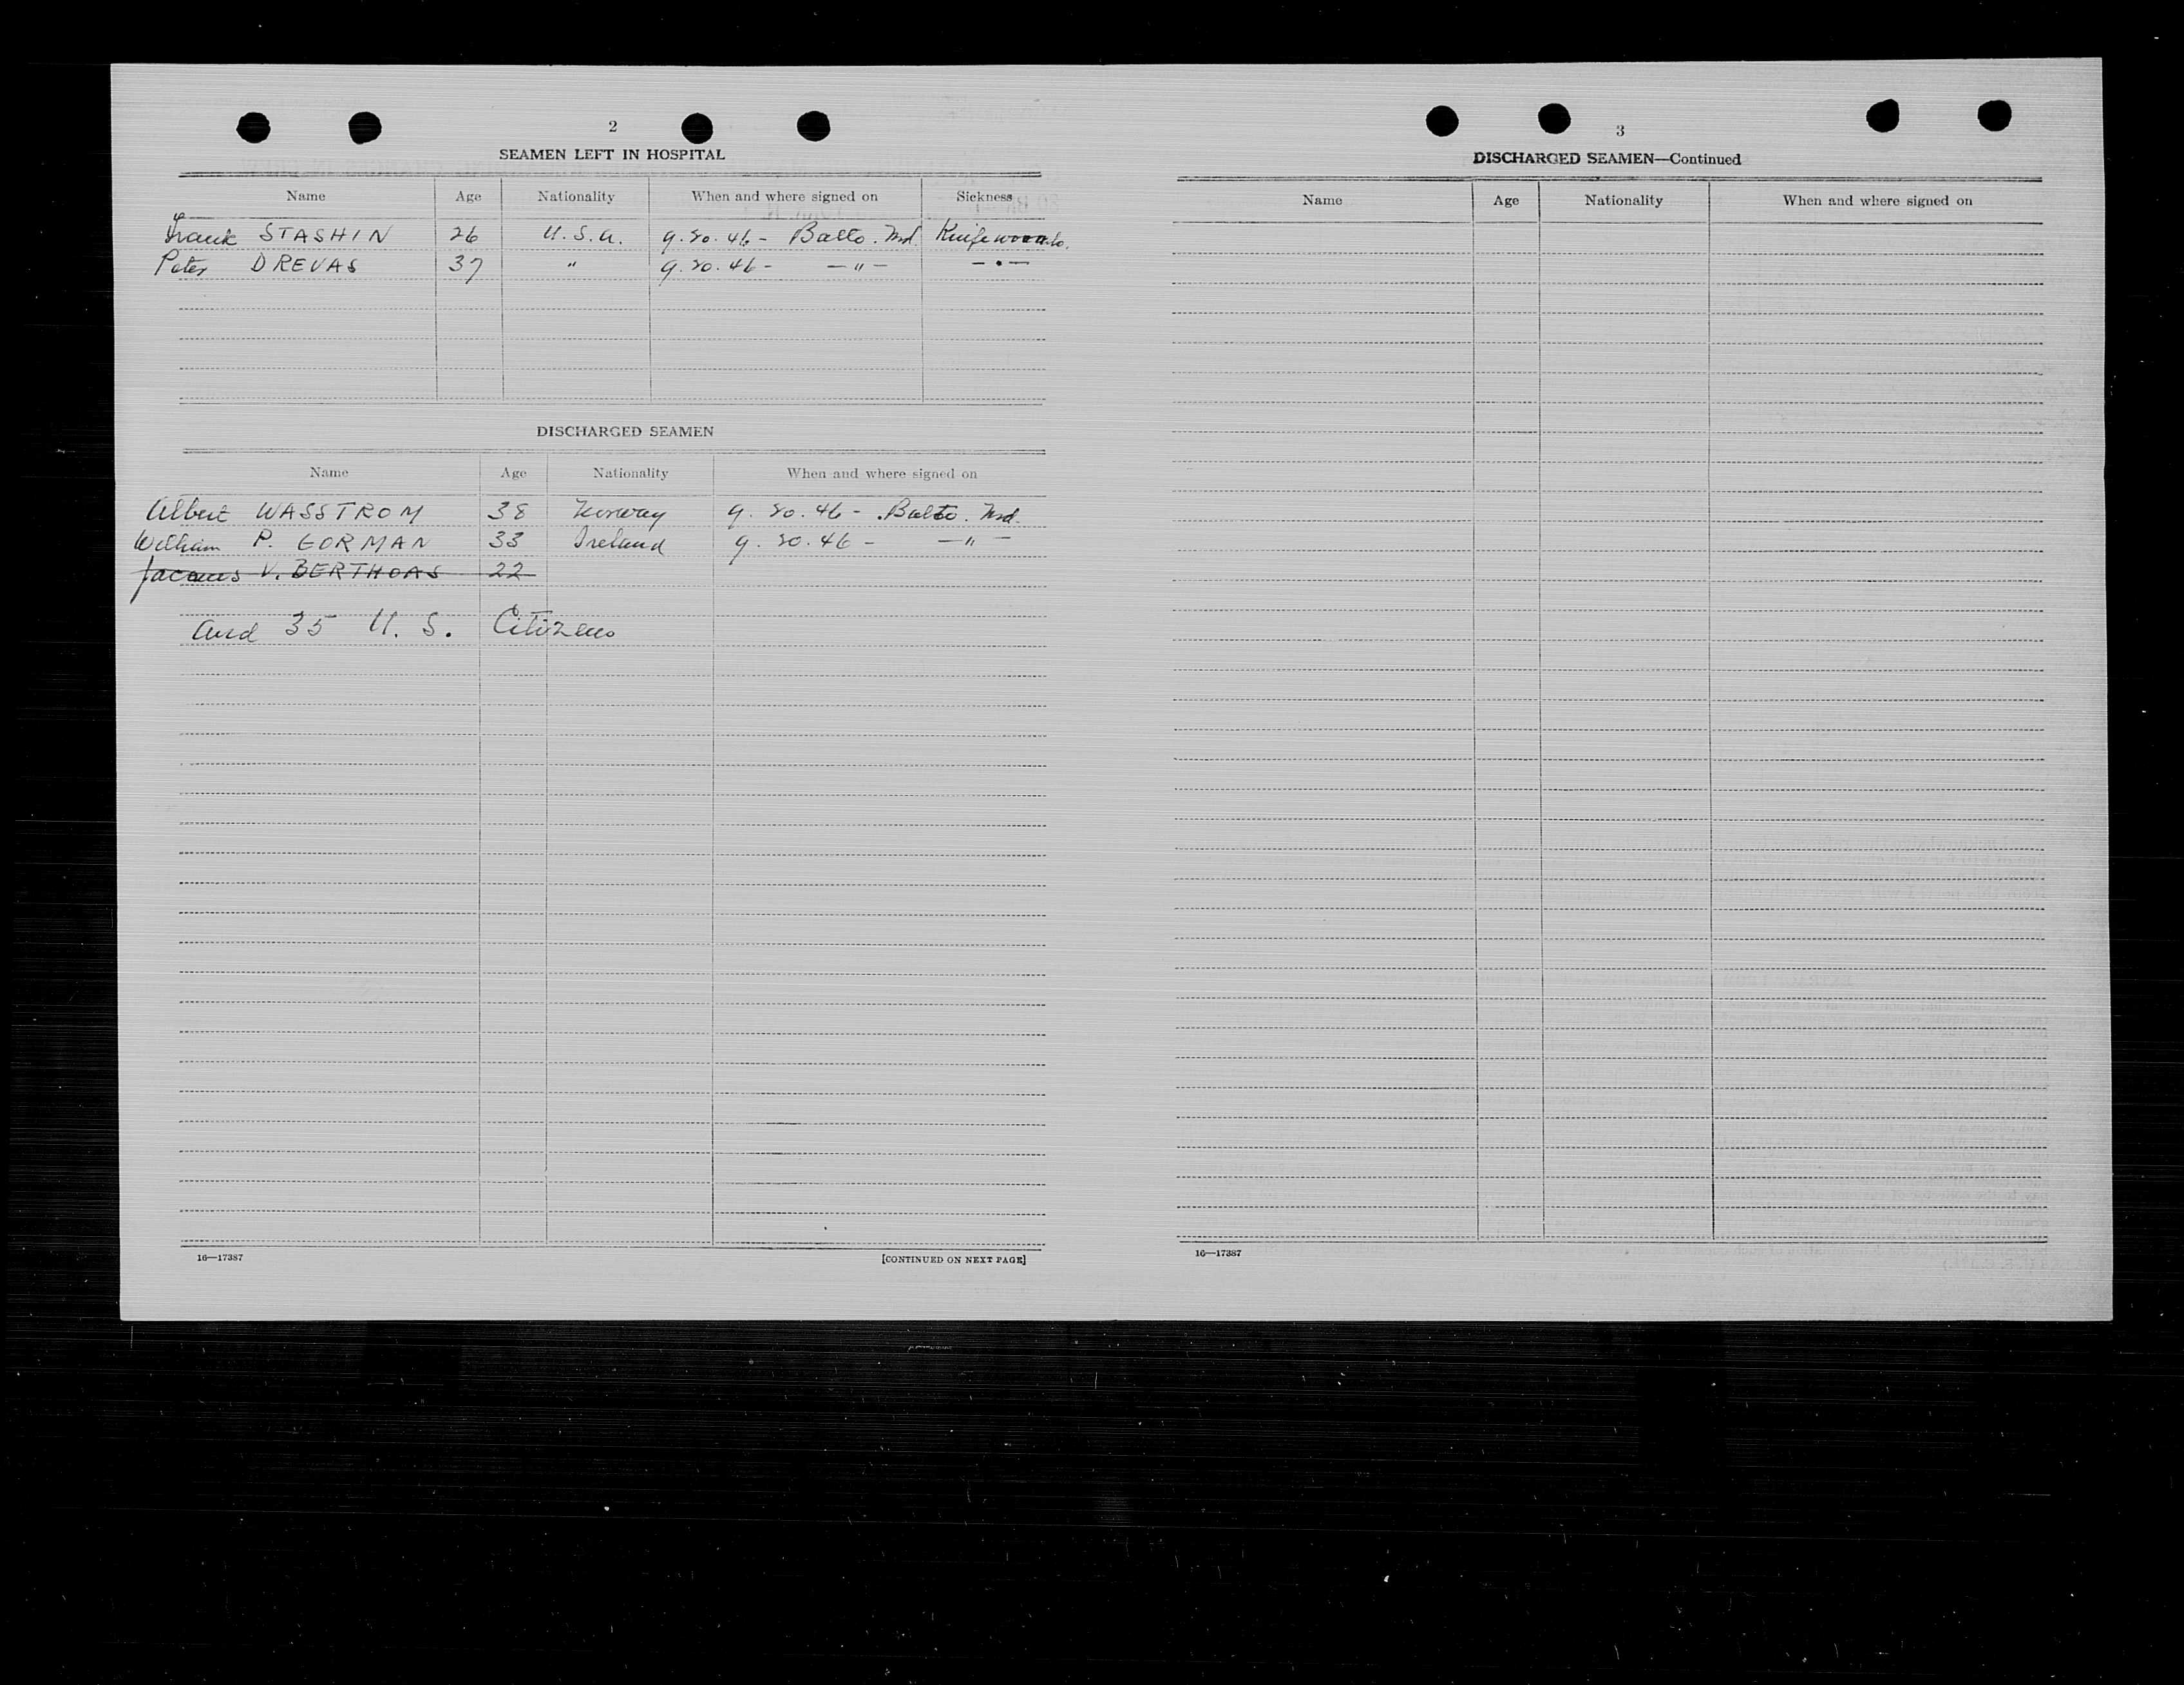 2
SEAMEN LEFT IN HOSPITAL
Name Age Nationality When and where signed on Sickness
Frank STASHIN 26 U.S.A. 9.20.46 - Balto. Md. Knife wounds.
Peter DREVAS 37 " 9.20.46 - — " — — " —
DISCHARGED SEAMEN
Name Age Nationality When and where signed on
Albert WASSTROM 38 Norway 9.20.46 - Balto. Md.
William P. GORMAN 33 Ireland 9.20.46 - — " —
Jacques V. BERTHOAS 22
and 35 U. S. Citizens
16—17387
[CONTINUED ON NEXT PAGE]
3
DISCHARGED SEAMEN—Continued
Name Age Nationality When and where signed on
16—17387